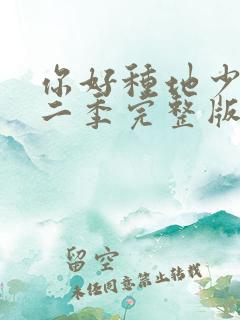 你好種地少
二季完整版
留空
未任同意禁止转载